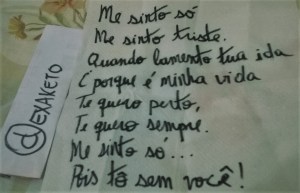 Me sinto só
Me sinto triste.
Quando lamento tua ida
É porque é minha vida
Te quero perto,
Te quero sempre.
Me sinto só...
Pois tô sem você!
@EXAKETO